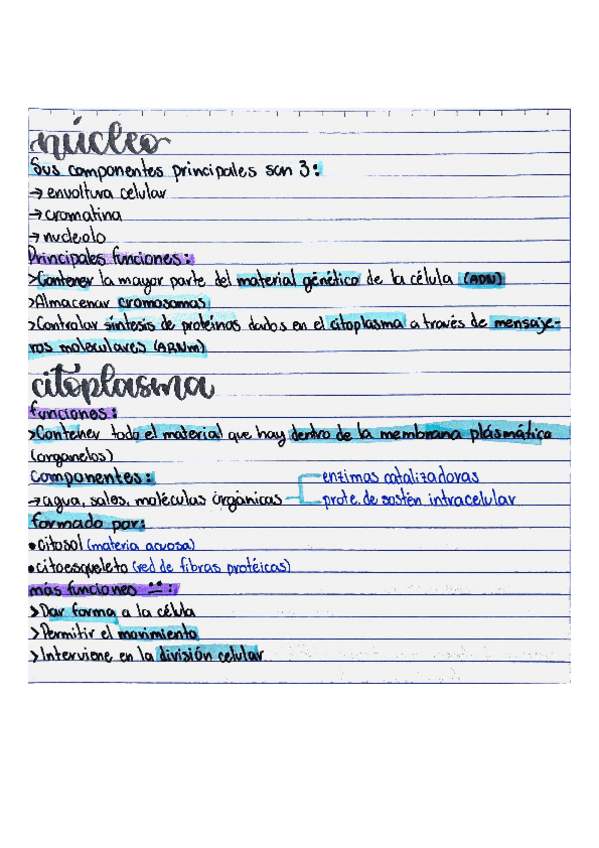 núcleo
Sus componentes principales son 3:
→ envoltura celular
→ cromatina
→ nucleolo
Principales funciones:
>Contener la mayor parte del material génético de la célula (ADN)
>Almacenar cromosomas
>Controlar síntesis de proteínas dados en el citoplasma a través de mensaje-
ros moleculares (ARNm)
citoplasma
funciones:
>Contener todo el material que hay dentro de la membrana plásmática
(organelos)
componentes:
enzimas catalizadoras
→ agua, sales, moléculas orgánicas
prote. de sostén intracelular
formado por:
•citosol (materia acuosa)
•citoesqueleto (red de fibras protéicas)
más funciones :
>Dar forma a la célula
>Permitir el movimiento
>Interviene en la división celular